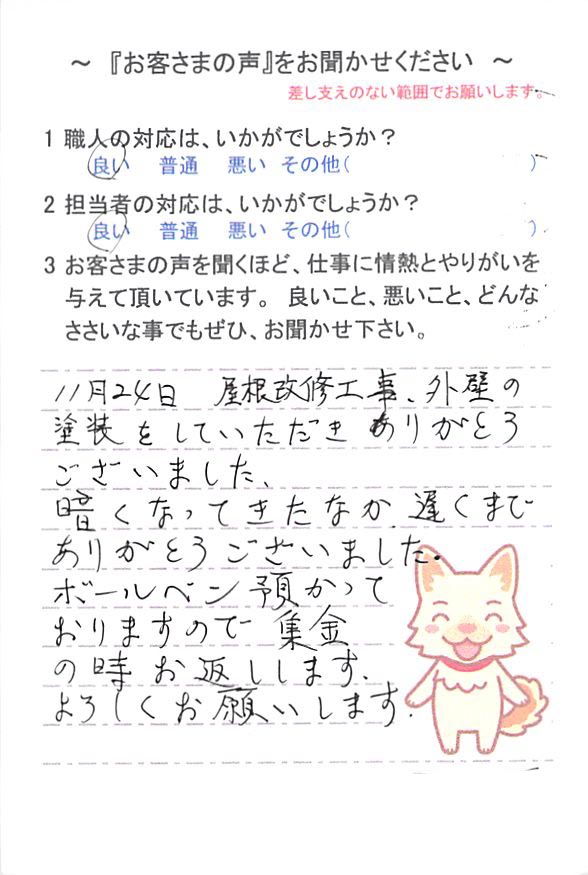 ～ 『お客さまの声』をお聞かせください ～
差し支えのない範囲でお願いします。
1 職人の対応は、いかがでしょうか？
良い 普通 悪い その他( )
2 担当者の対応は、いかがでしょうか？
良い 普通 悪い その他( )
3 お客さまの声を聞くほど、仕事に情熱とやりがいを
与えて頂いています。 良いこと、悪いこと、どんな
ささいな事でもぜひ、お聞かせ下さい。
11月24日 屋根改修工事、外壁の
塗装をしていただきありがとう
ございました、
暗くなってきたなか、遅くまで
ありがとうございました。
ボールペン預かって
おりますので集金
の時お返しします。
よろしくお願いします。